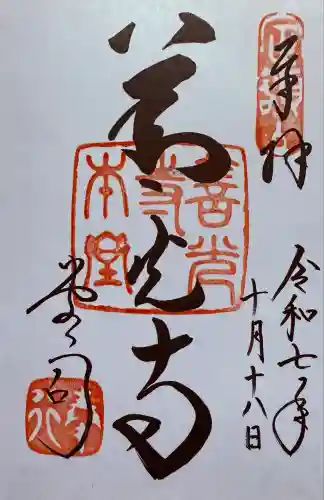 奉拝
令和七年
十月十八日
善光寺
善光寺本堂
堂司